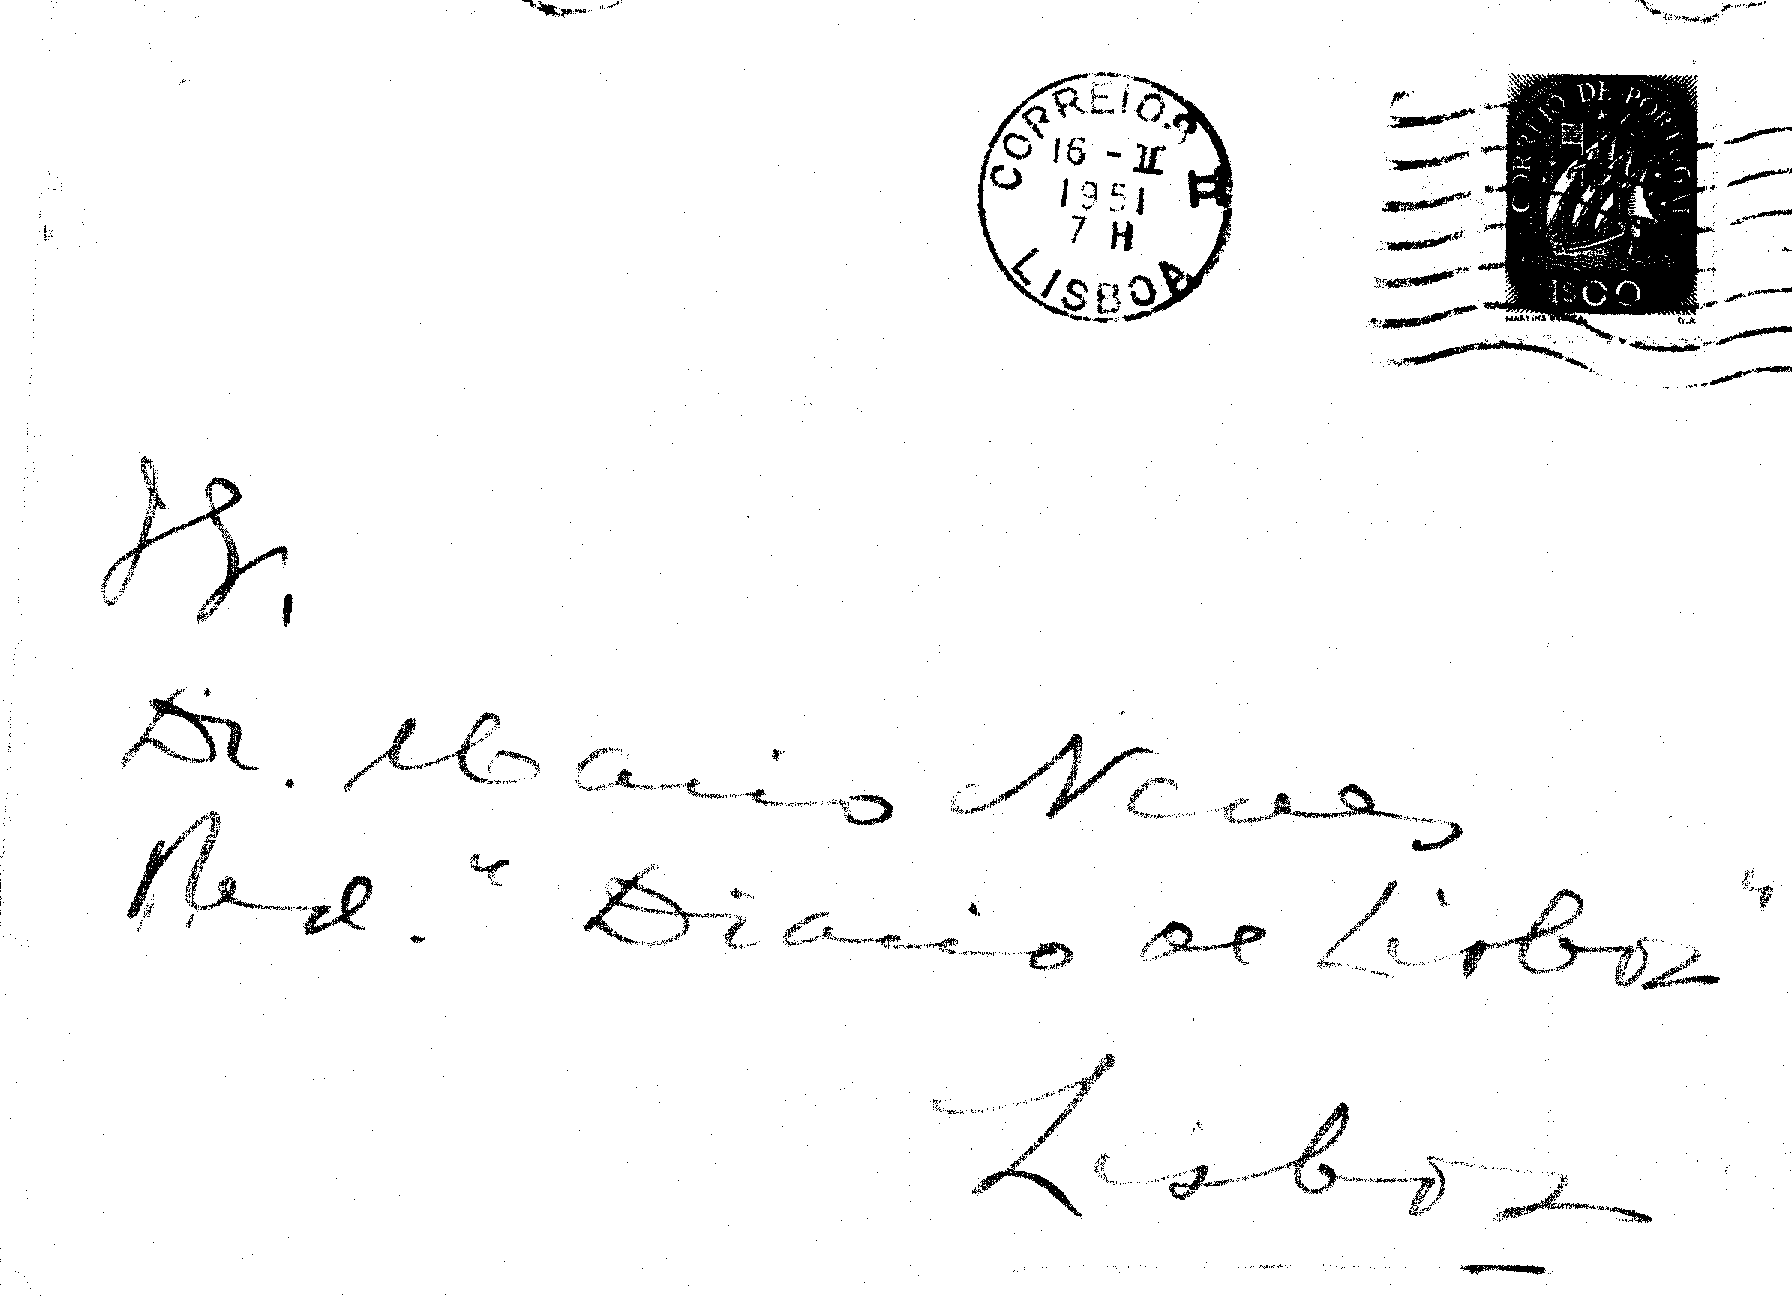 CORREIOS II
16-II
1951
7 H
LISBOA
CORREIO DE PORTUGAL
1$00
MARTINS
Dr. Mario Neves
Red. "Diario de Lisboa"
Lisboa